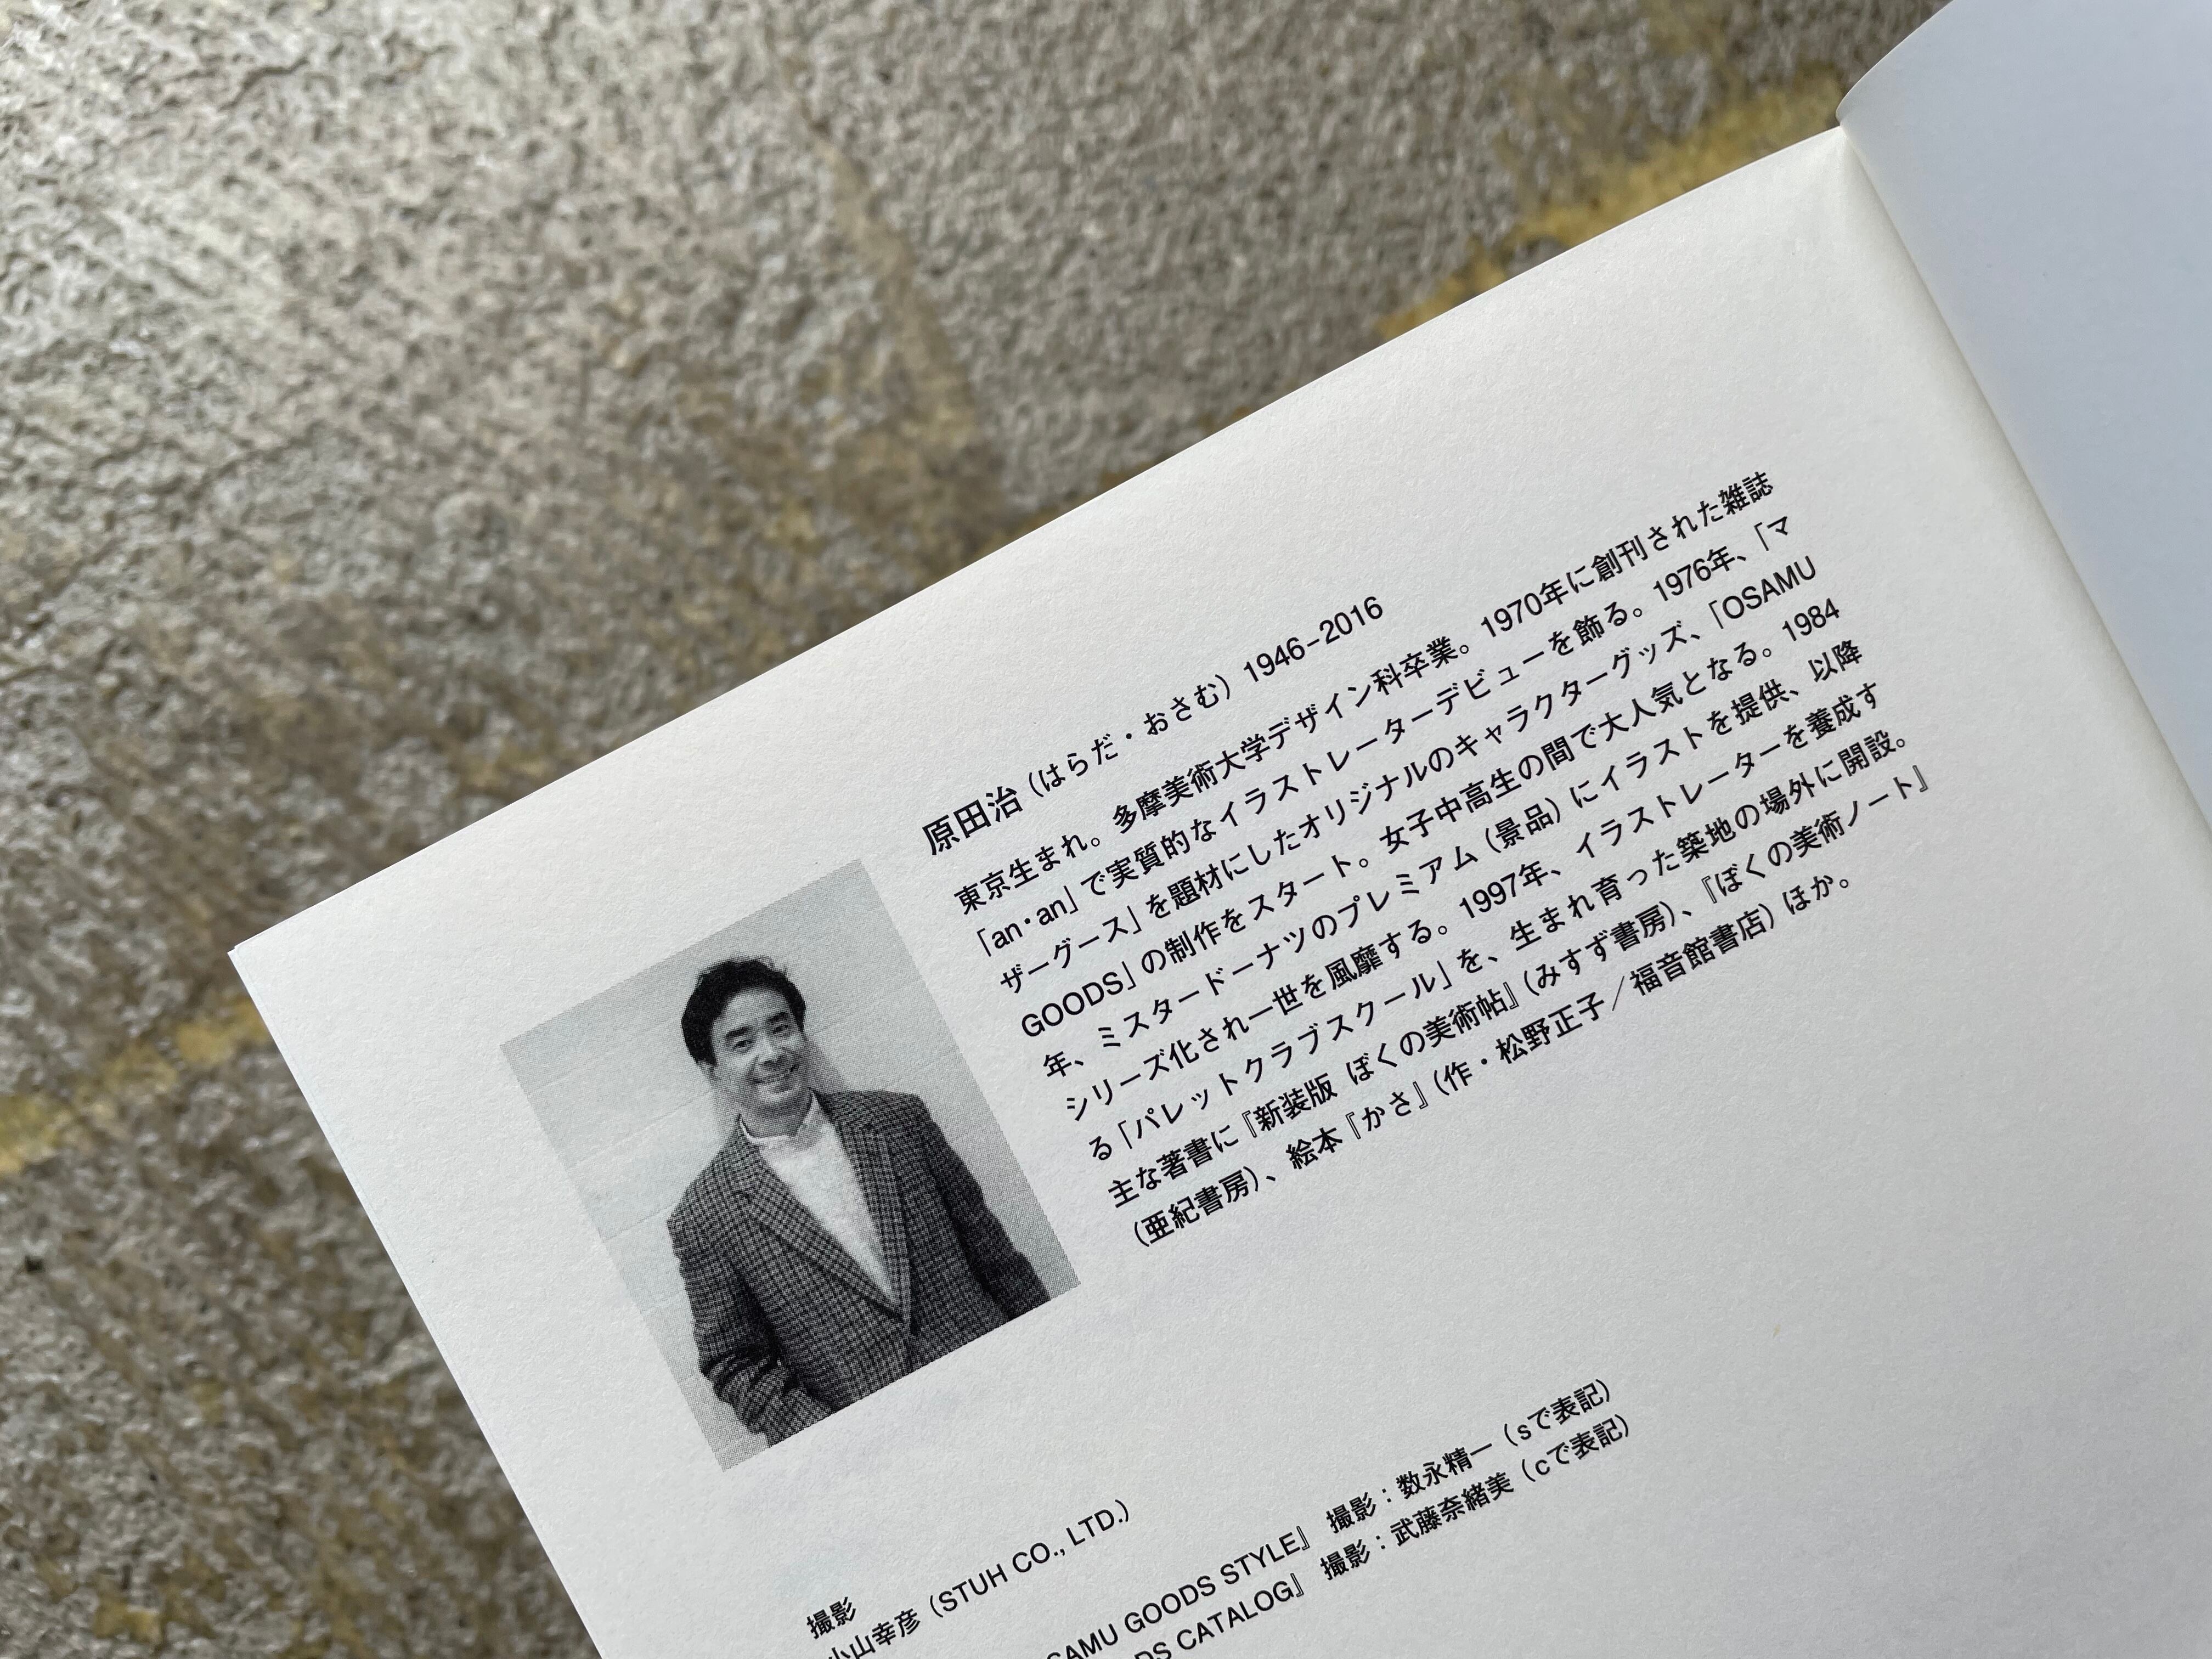 原田治（はらだ・おさむ）1946–2016
東京生まれ。多摩美術大学デザイン科卒業。1970年に創刊された雑誌
「an・an」で実質的なイラストレーターデビューを飾る。1976年、「マ
ザーグース」を題材にしたオリジナルのキャラクターグッズ、「OSAMU
GOODS」の制作をスタート。女子中高生の間で大人気となる。1984
年、ミスタードーナツのプレミアム（景品）にイラストを提供、以降
シリーズ化され一世を風靡する。1997年、イラストレーターを養成す
る「パレットクラブスクール」を、生まれ育った築地の場外に開設。
主な著書に『新装版 ぼくの美術帖』（みすず書房）、『ぼくの美術ノート』
（亜紀書房）、絵本『かさ』（作・松野正子／福音館書店）ほか。
撮影
小山幸彦（STUH CO., LTD.）
SAMU GOODS STYLE』 撮影：数永精一（sで表記）
DS CATALOG』 撮影：武藤奈緒美（cで表記）